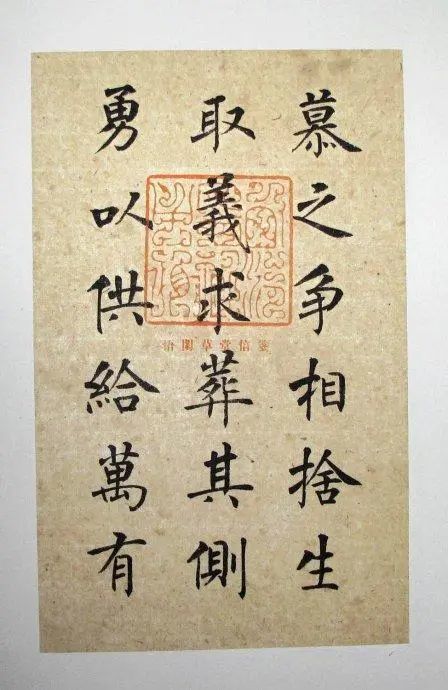 慕之争相捨生
取義求葬其側
勇以供給萬有